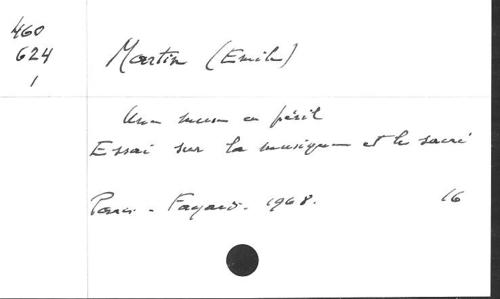 460
624
1
Martin (Emile)
Une muse en péril
Essai sur la musique et le sacré
Paris - Fayard. 1968. 16